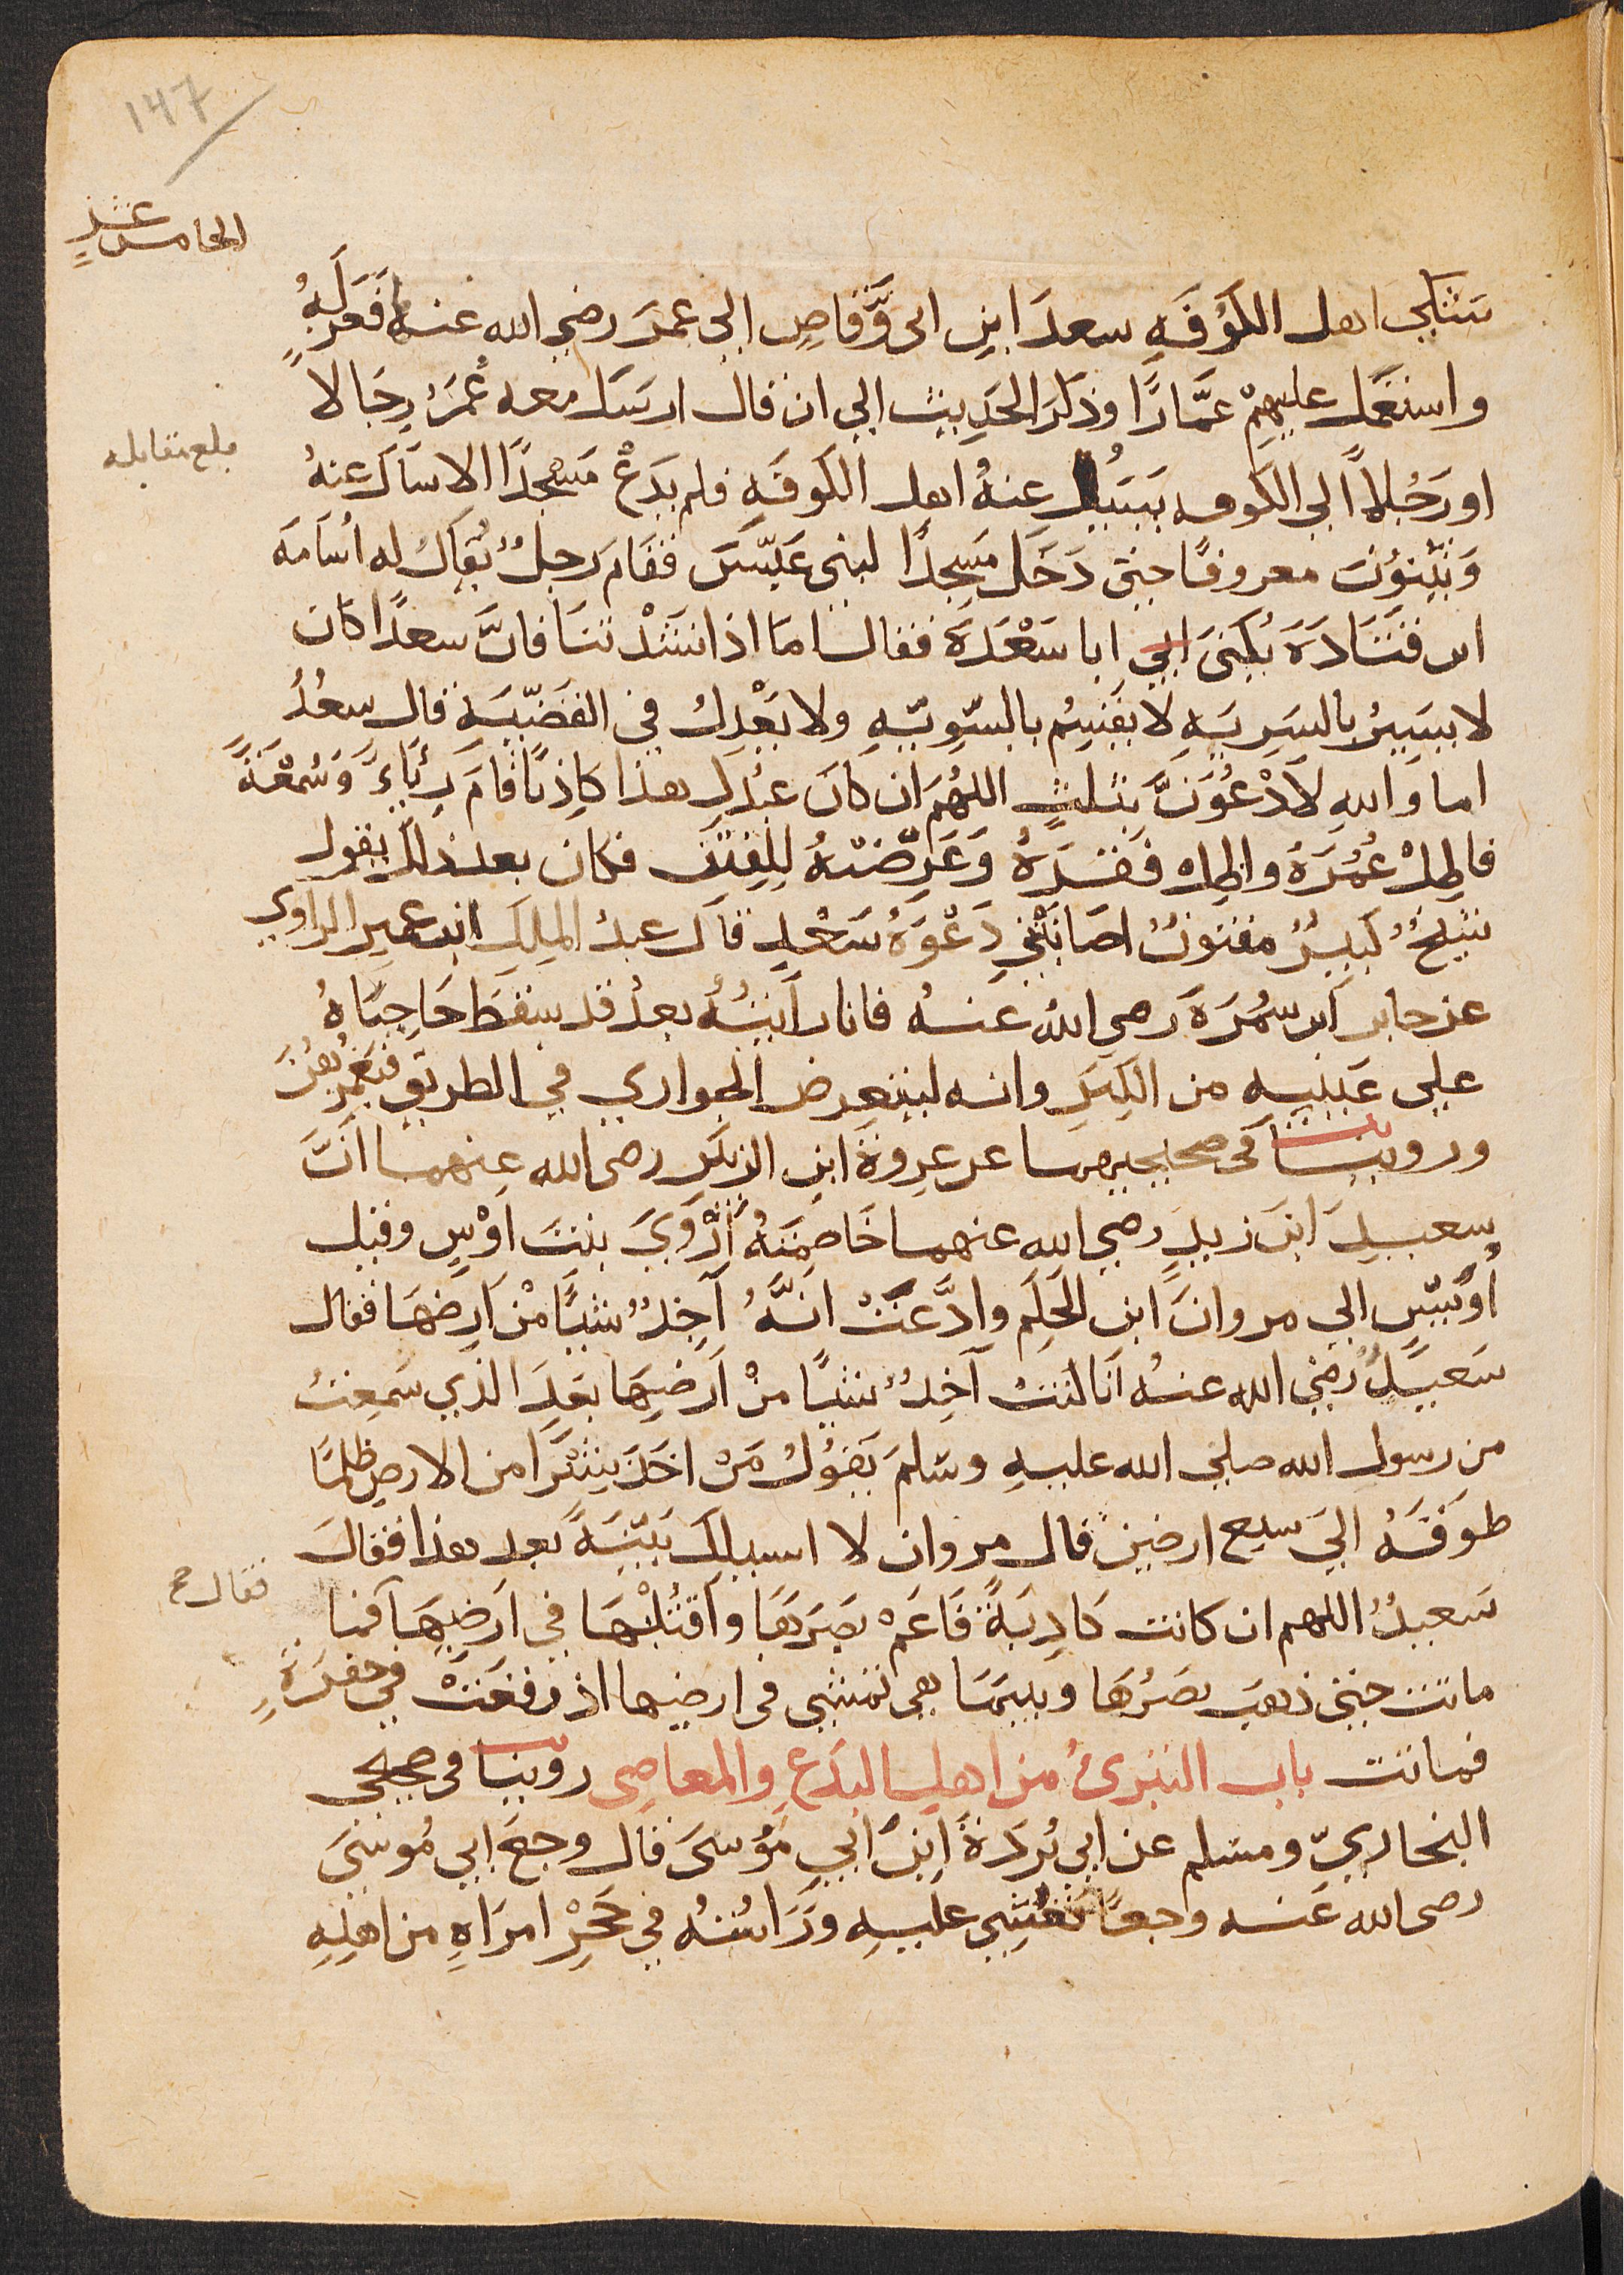 ١٤٧
الخامس عشر
شكى اهل الكوفه سعد ابن ابى وقاص الى عمر رضى الله عنه فعزله
واستعمل عليهم عمارا وذكر الحديث الى ان قال ارسل معه عمر رجالا
بلغ مقابله
او رجلا الى الكوفه يسيل عنه اهل الكوفه فلم يدع مسجدا الا سال عنه
ويثنون معروفا حتى دخل مسجدا لبنى عبس فقام رجل يقال له اسامه
ابن قتادة يكنى ابى ابا سعدة فقال اما اذا نشدتنا فان سعدا كان
لا يسير بالسريه لا يقسم بالسويه ولا يعدل فى القضيه قال سعد
اما والله لادعون بثلث اللهم ان كان عبدك هذا كاذبا قام رياء وسمعة
فاطل عمره واطل فقره وعرضه للفتن فكان بعد ذلك يقول
شيخ كبير مفتون اصابتنى دعوة سعد قال عبد الملك ابن عمير الراوى
عن جابر ابن سمرة رضى الله عنه فانا رايته بعد قد سقط حاجباه
على عينيه من الكبر وانه ليتعرض الجوارى فى الطريق فيغمزهن
وروينا فى صحيحيهما عن عروة ابن الزبير رضى الله عنهما ان
سعيد ابن زيد رضى الله عنهما خاصمته اروى بنت اوس وقيل
اويس الى مروان ابن الحكم وادعت انه اخذ شيا من ارضها فقال
سعيد رضى الله عنه انا كنت اخذ شيا من ارضها بعد الذى سمعت
من رسول الله صلى الله عليه وسلم يقول من اخذ شبرا من الارض ظلما
طوقه الى سبع ارضين قال مروان لا اسيلك بينة بعد هذا فقال
فقال صح
سعيد اللهم ان كانت كاذبة فاعم بصرها واقتلها فى ارضها فما
ماتت حتى ذهب بصرها وبينما هى تمشى فى ارضها اذ وقعت فى حفرة
فماتت باب التبرئ من اهل البدع والمعاصى روينا فى صحيحى
البخارى ومسلم عن ابى بردة ابن ابى موسى قال وجع ابى موسى
رضى الله عنه وجعا فغشى عليه وراسه فى حجر امراه من اهله